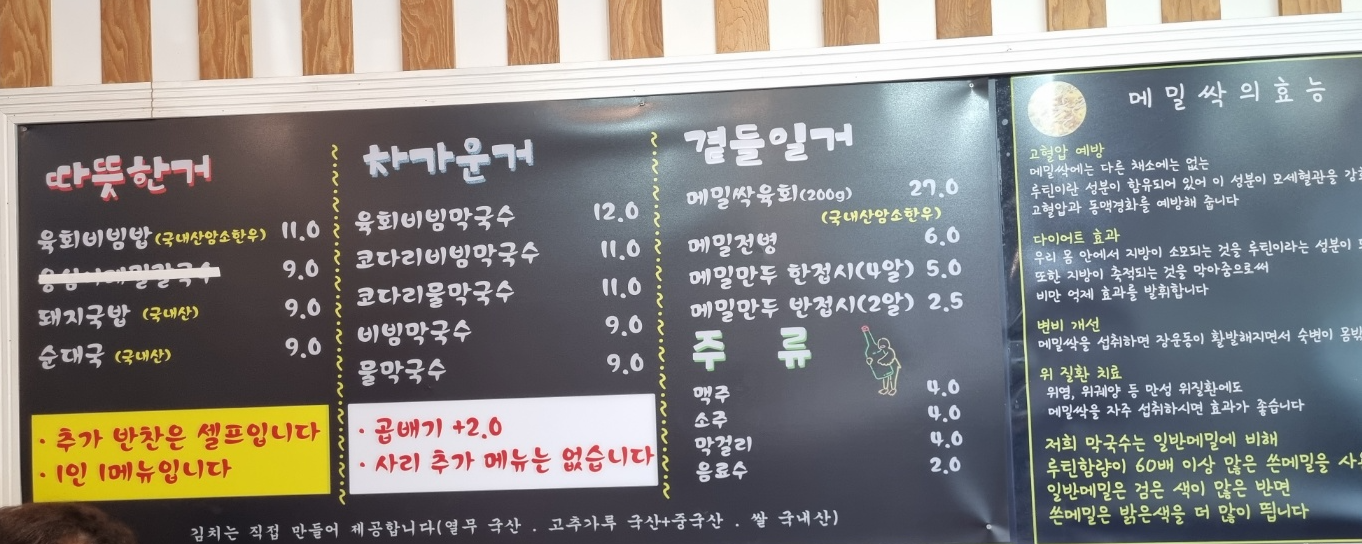 따뜻한거
육회비빔밥(국내산암소한우) 11.0
9.0
돼지국밥 (국내산) 9.0
순대국 (국내산) 9.0
· 추가 반찬은 셀프입니다
· 1인 1메뉴입니다
차가운거
육회비빔막국수 12.0
코다리비빔막국수 11.0
코다리물막국수 11.0
비빔막국수 9.0
물막국수 9.0
· 곱배기 +2.0
· 사리 추가 메뉴는 없습니다
곁들일거
메밀싹육회(200g) 27.0
(국내산암소한우)
메밀전병 6.0
메밀만두 한접시(4알) 5.0
메밀만두 반접시(2알) 2.5
주 류
맥주 4.0
소주 4.0
막걸리 4.0
음료수 2.0
김치는 직접 만들어 제공합니다(열무 국산 . 고추가루 국산+중국산 . 쌀 국내산)
메밀싹의효능
고혈압 예방
메밀싹에는 다른 채소에는 없는
루틴이란 성분이 함유되어 있어 이 성분이 모세혈관을
고혈압과 동맥경화를 예방해 줍니다
다이어트 효과
우리 몸 안에서 지방이 소모되는 것을 루틴이라는 성분이
또한 지방이 축적되는 것을 막아줌으로써
비만 억제 효과를 발휘합니다
변비 개선
메밀싹을 섭취하면 장운동이 활발해지면서 숙변이
위 질환 치료
위염, 위궤양 등 만성 위질환에도
메밀싹을 자주 섭취하시면 효과가 좋습니다
저희 막국수는 일반메밀에 비해
루틴함량이 60배 이상 많은 쓴메밀을
일반메밀은 검은 색이 많은 반면
쓴메밀은 밝은색을 더 많이 띕니다